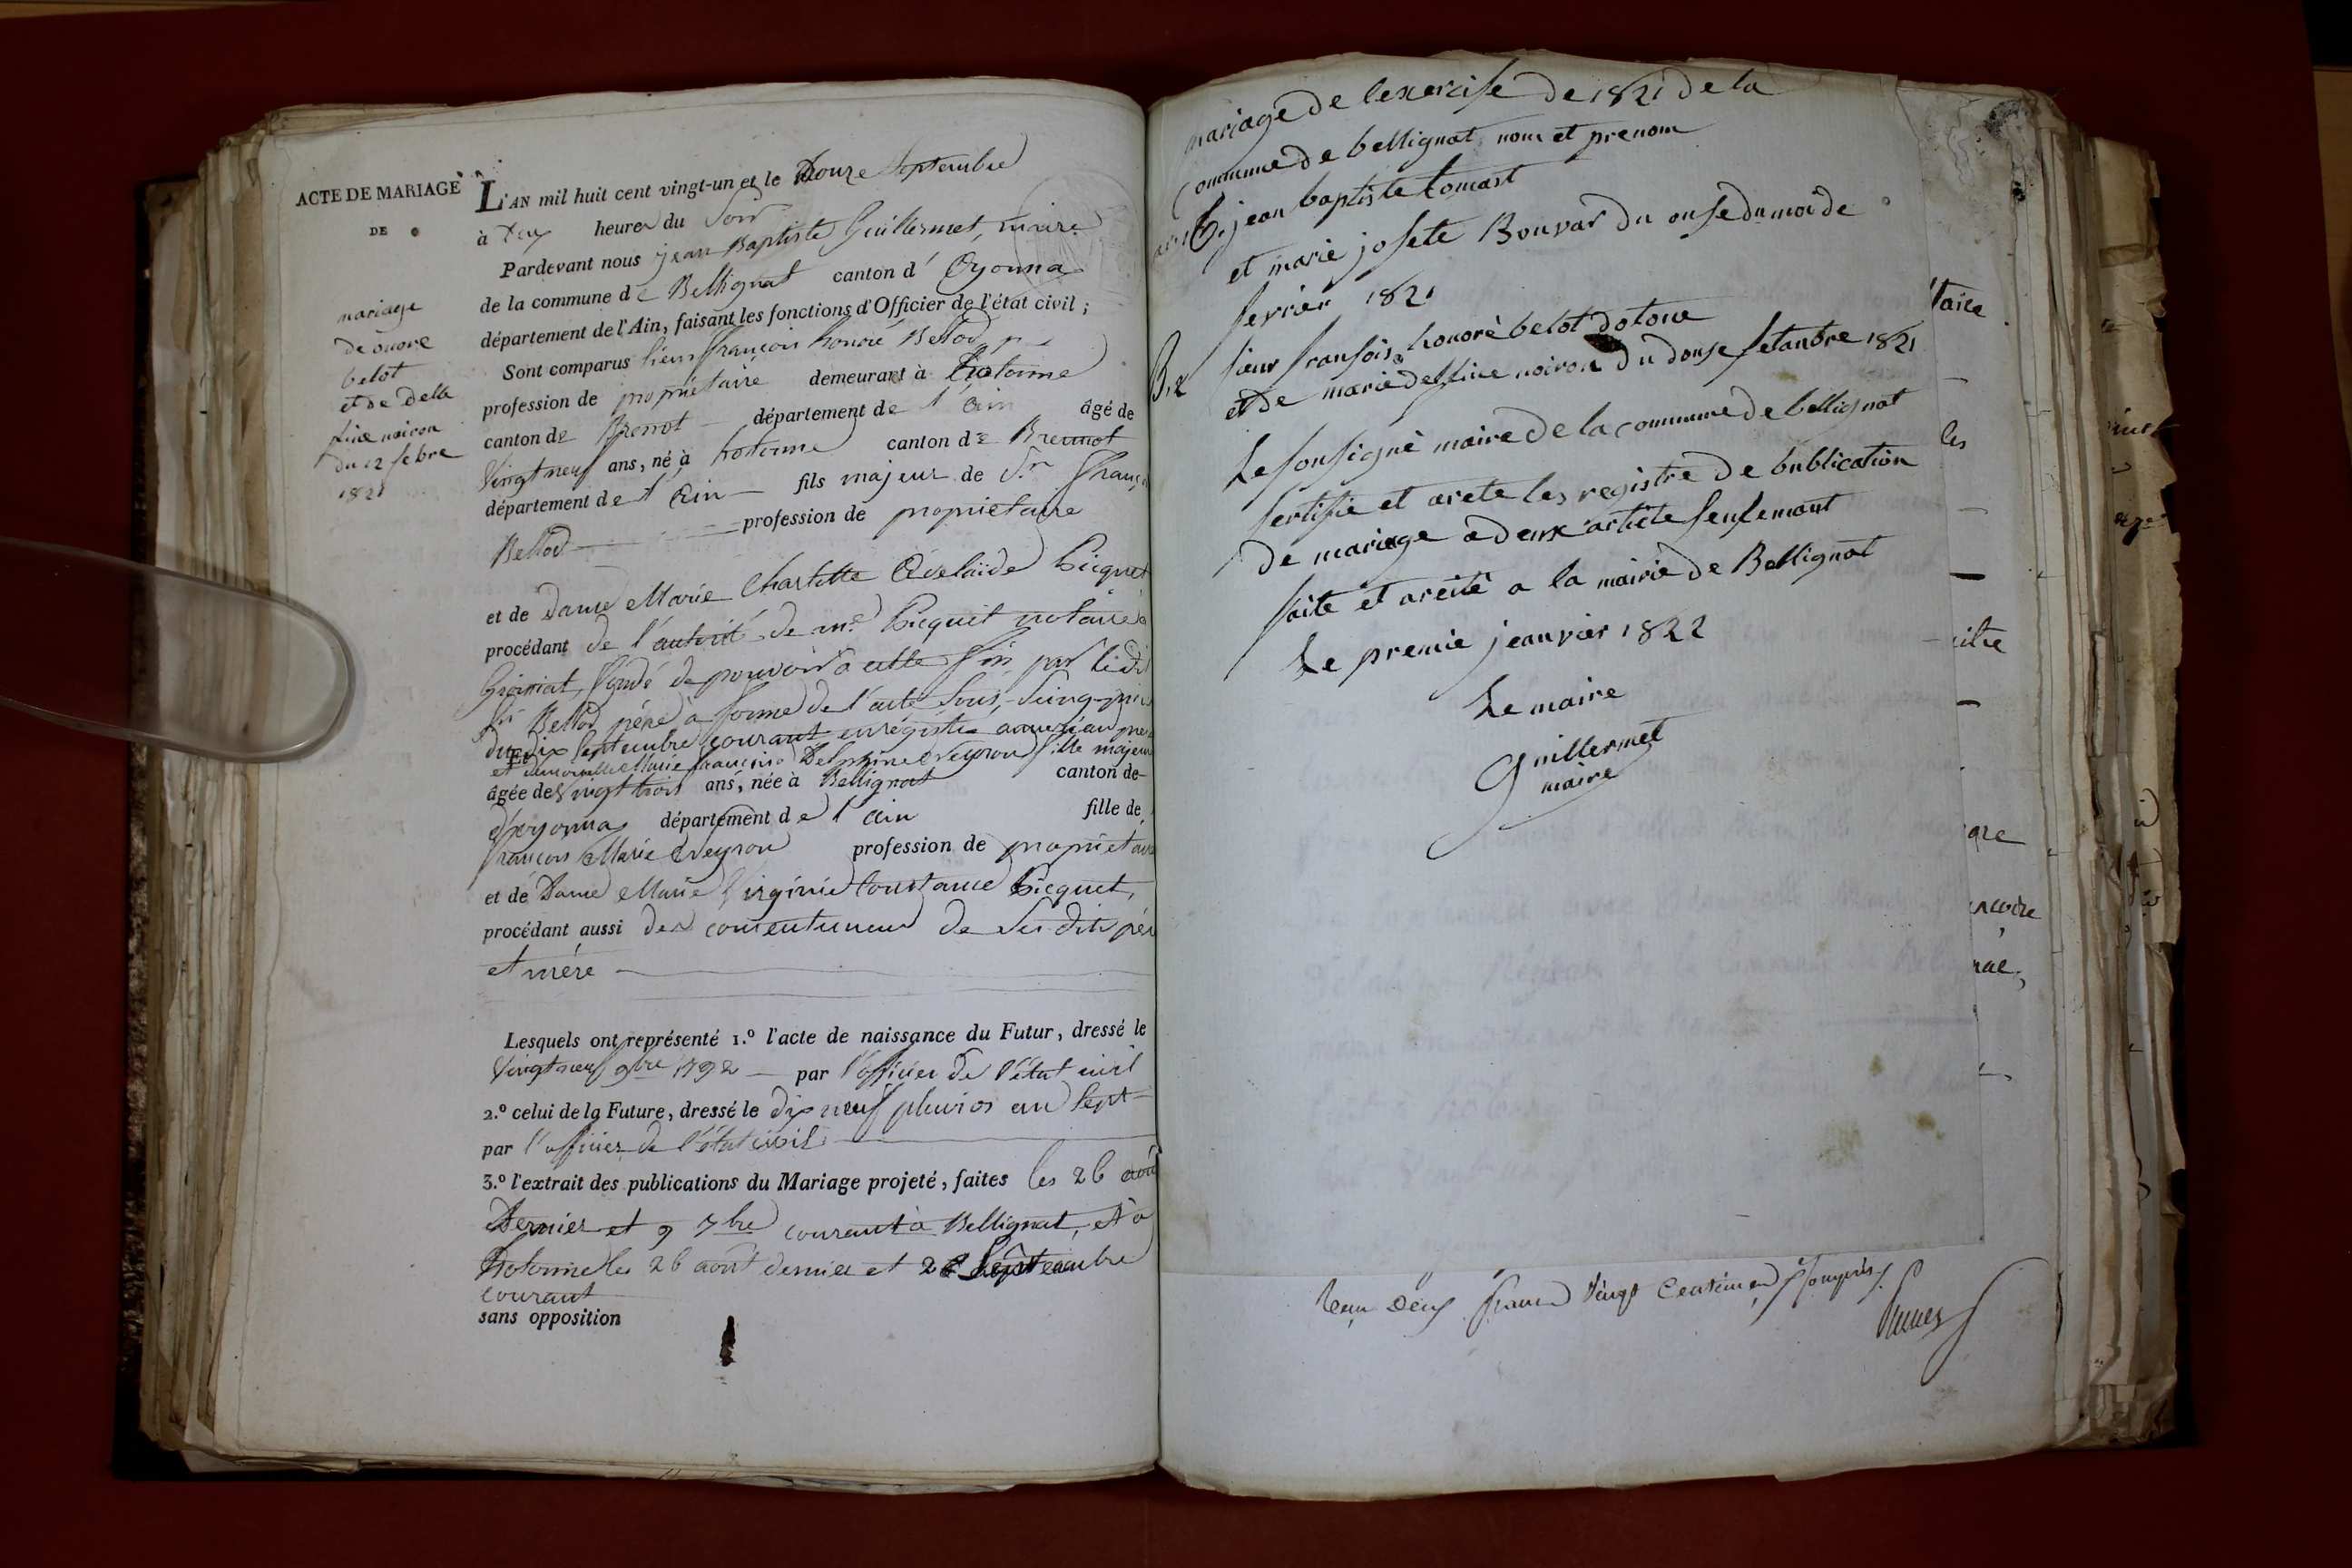 ACTE DE MARIAGE
DE
mariage
de onore
belot
et de delle
fine neiron
du 12 sebre
1821
L'AN mil huit cent vingt-un et le Douze Septembre
à Deux heures du Soir
Pardevant nous jean Baptiste Guillermet, maire
de la commune de Bellignat canton d' Oyonna
département de l'Ain, faisant les fonctions d'Officier de l'état civil ;
Sont comparus Sieur françois honoré Bellod
profession de propriétaire demeurant à hotonne
canton de Brenot département de l'ain âgé de
Vingt neuf ans, né à hotonne canton de Brennot
département de l'Ain fils majeur de Sr. franç
Bellod profession de propriétaire
et de Dame Marie Charlotte Adelaïde Picquet
procédant de l'autorité de me. Picquet notaire
fondé de pouvoir à cette fin par ledit
Sr Bellod père à forme de l'acte sous-seing-pri
du dix Septembre courant enrégistré
Et
et demoiselle Marie françoise Delphine Neyron fille majeur
âgée de vingt trois ans, née à Bellignat canton de
d'oyonna département de l'ain fille de
françois Marie Neyron profession de propriétaire
et de Dame Marie Virginie Constance Picquet,
procédant aussi des consentemens de Ses dits pèr
et mère
Lesquels ont représenté 1.º l'acte de naissance du Futur, dressé le
Vingt neuf 9bre 1792 par l'officier de l'état civil
2.º celui de la Future, dressé le dix neuf pluvios an Sept
par l'officier de l'état civil
3.º l'extrait des publications du Mariage projeté, faites les 26 aoû
Dernier et 9 7bre courant à Bellignat, et à
hotonne les 26 août dernier et 2 Septembre
courant
sans opposition
mariage de lexersise de 1821 de la
commune de bellignat nom et prenom
jean baptiste tomast
et marie josete Bouvar du onse du moi de
fevrier 1821
sieur fransois honorè belot dotone
et de marie delfine neiron du douse setanbre 1821
Le sousigné maire de la commune de bellignat
sertifie et arete les registre de bublication
de mariage a deux article seulemant
faite et areité a la mairie de Bellignat
Le premie jeanvier 1822
Le maire
Guillermet
maire
Reçu deux francs Vingt Centimes
taire
les
aître
gre
ncoire
rae,